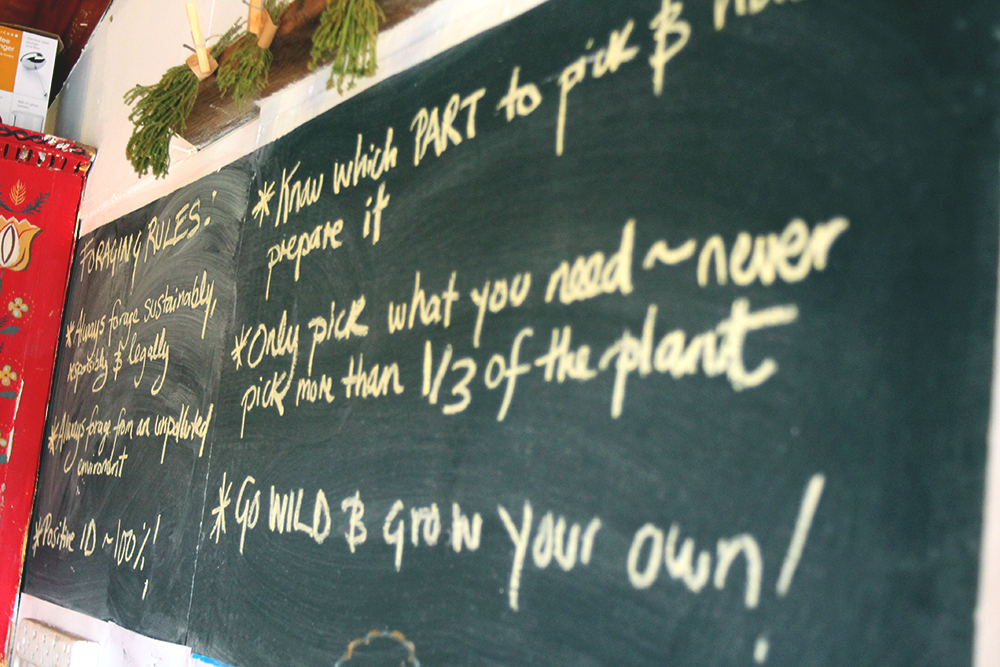 FORAGING RULES:
*Always forage sustainably,
responsibly & legally
*Always forage from an unpolluted
environment
*Positive ID ~100%!
*Know which PART to pick &
prepare it
*Only pick what you need ~ never
pick more than 1/3 of the plant
*GO WILD & grow your own!